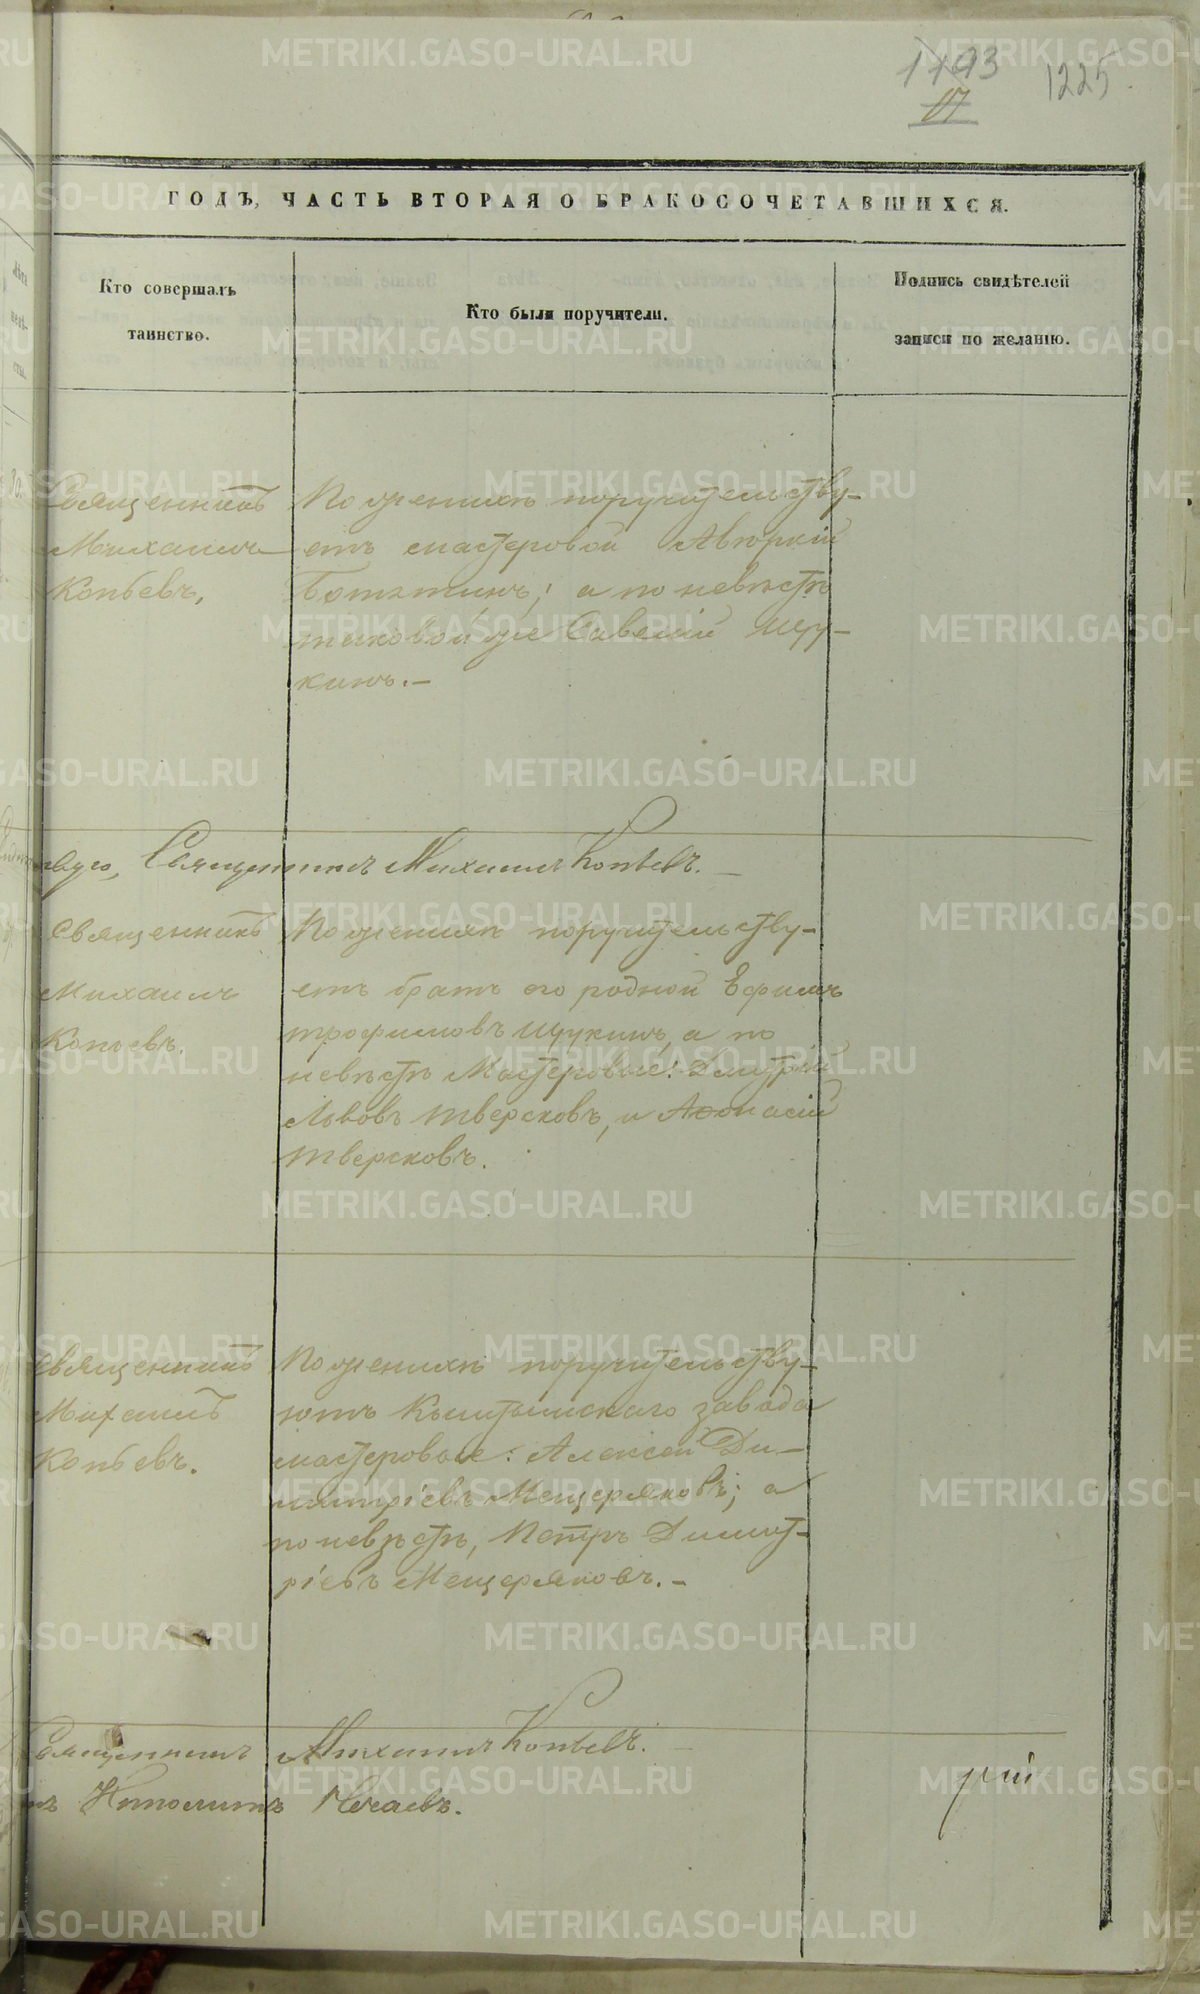 1193
1225
17
ГОДЪ, ЧАСТЬ ВТОРАЯ О БРАКОСОЧЕТАВШИХСЯ.
Кто совершалъ
таинство.
Кто были поручители.
Подпись свидѣтелей
записи по желанію.
Священникъ
Михаилъ
Копьевъ,
По женихѣ поручительству-
етъ мастеровой Аверкій
а по невѣстѣ
таковой же Савелій Щу-
кинъ.-
Священникъ Михаилъ Копьевъ.
Священникъ
Михаилъ
Копьевъ.
По женихѣ поручительству-
етъ братъ его родной Ефимъ
Трофимовъ Щукинъ, а по
невѣстѣ Мастеровые: Дмитрій
Львовъ Тверсковъ, и Афонасій
Тверсковъ.
Священникъ
Михаилъ
Копьевъ.
По женихѣ поручительству-
ютъ Кыштымскаго завода
мастеровые: Алексей Ди-
митріевъ Мещеряковъ; а
по невѣстѣ, Петръ Димит-
ріевъ Мещеряковъ.-
Священникъ Михаилъ Копьевъ.
Ипполитъ
рій
METRIKI.GASO-URAL.RU